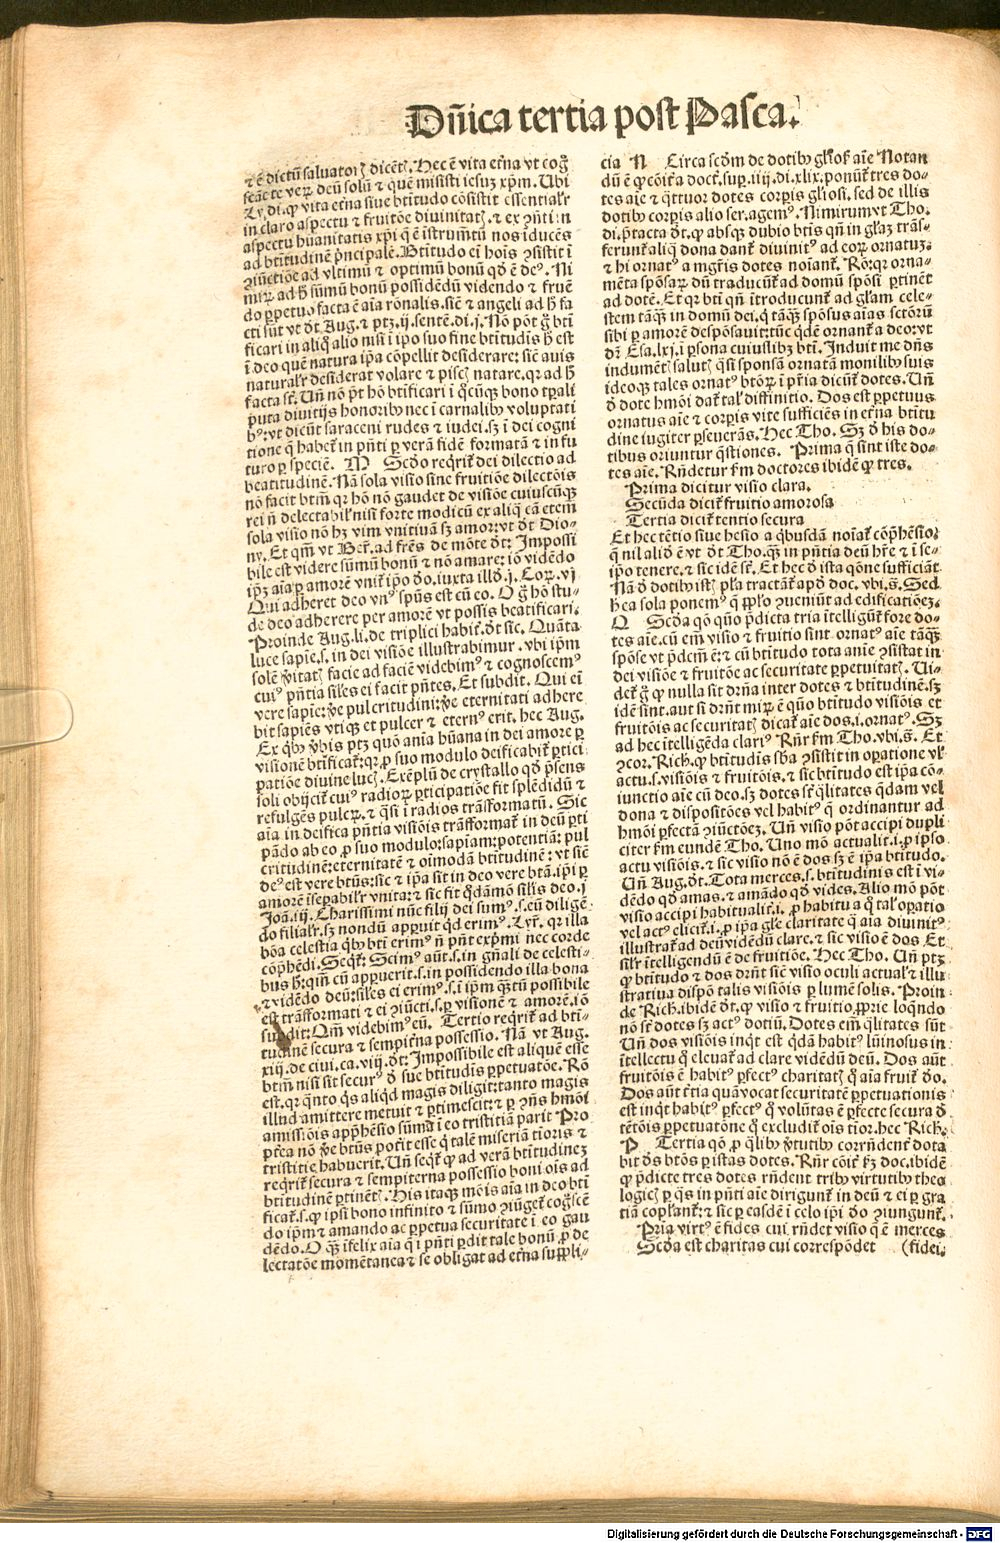 Dn̄ica tertia post Pasca.
⁊ ē dictū saluatorꝭ dicētꝭ. Hec ē vita et̄na vt coḡ
scāt te veꝝ deū solū ⁊ quē misisti iesuꝫ xp̄m. Ubi
Ly. di. ꝙ vita et̄na siue btitudo cōsistit essentialr̄
in claro aspectu ⁊ fruitōe diuinitatꝭ. ⁊ ex ꝯn̄ti in
aspectu hūanitatis xp̄i q̄ ē īstrumētū nos īducēs
ad btitudinē p̄ncipalē. Btitudo eī hoīs ꝯsistit ī
ꝯiūctiōe ad vltimū ⁊ optimū bonū qd̄ ē deꝰ. Ni
miꝝ ad h̄ sūmū bonū possidēdū videndo ⁊ fruē
do ꝑpetuo facta ē aīa rōnalis. sic̄ ⁊ angeli ad h̄ fa
cti sūt vt dt̄ Aug. ⁊ ptꝫ. ij. sentē. di. j. Nō pōt ḡ bti
ficari in aliq̄ alio nisi ī ip̄o suo fine btitudīs h̄ est
ī deo quē natura ip̄a cōpellit desiderare: sic̄ auis
naturalr̄ desiderat volare ⁊ piscꝭ natare. qꝛ ad h̄
facta st̄. Un̄ nō pt̄ hō btificari ī q̄cūqꝫ bono tꝑali
puta diuitijs honoribꝰ nec ī carnalibꝰ voluptati
bꝰ: vt dicūt saraceni rudes ⁊ iudei. sꝫ ī dei cogni
tione q̄ habet̄ in pn̄ti ꝑ verā fidē formatā ⁊ in fu
turo ꝑ speciē. M Scd̄o reqrit̄ dei dilectio ad
beatitudinē. Nā sola visio sine fruitiōe dilectōis
nō facit btm̄ qꝛ hō nō gaudet de visiōe cuiuscūqꝫ
rei n̄ delectabilꝭ nisi forte modicū ex aliq̄ cā etem̄
sola visio nō hꝫ vim vnitiuā sꝫ amor: vt dt̄ Dio-
ny. Et qm̄ vt Ber̄. ad fr̄es de mōte dt̄: Impossi
bile est videre sūmū bonū ⁊ nō amare: iō vidēdo
ip̄ꝫ aīa ꝑ amorē vnit̄ ip̄o d̄o. iuxta illd̄. j. Coꝝ. vj
Qui adheret deo vnꝰ spūs est cū eo. O ḡ hō stu-
de deo adherere per amorē vt possis beatificari.
Proinde Aug. li. de triplici habit̄. dt̄ sic. Quāta
luce sapīe. s. in dei visiōe illustrabimur. vbi ip̄m
solē v̄itatꝭ facie ad faciē videbimꝰ ⁊ cognoscemꝰ
cuiꝰ pn̄tia siles ei facit pn̄tes. Et subdit. Qui eī
vere sapīe: v̄e pulcritudini: v̄e eternitati adhere
bit sapiēs vtiqꝫ et pulcer ⁊ eternꝰ erit. hec Aug.
Ex qbꝰ v̄bis ptꝫ quō anīa hūana in dei amore ꝑ
visionē btificat̄: qꝛ ꝓ suo modulo deificabit̄ ꝑtici
patiōe diuine lucꝭ. Exēplū de crystallo qd̄ p̄sens
soli obijcit̄ cuiꝰ radioꝝ ꝑticipatiōe fit splēdidū ⁊
refulgēs pulcꝝ. ⁊ q̄si ī radios trāsformatū. Sic
aīa in deifica pn̄tia visiōis trāsformat̄ in deū ꝑti
pādo ab eo ꝓ suo modulo: sapiam: potentiā: pul
critudinē: eternitatē ⁊ oīmodā btitudinē: vt sic̄
deꝰ est vere btūs: sic ⁊ ip̄a sit in deo vere btā. ip̄i ꝑ
amorē īseꝑabilr̄ vnita: ⁊ sic fit q̄dāmō silis deo. j
Joā. iij. Charissimi nūc filij dei sumꝰ. s. eū diligē
do filialr̄. sꝫ nondū apparuit qd̄ erimꝰ. Lyr̄. qꝛ illa
bōa celestia qbꝰ bti erimꝰ n̄ pn̄t exp̄mi nec corde
cōp̄hēdi. Seqt̄: Scimꝰ aūt. s. in gn̄ali de celesti-
bus h̄: qm̄ cū apparuerit. s. in possidendo illa bona
⁊ vidēdo deū: siles ei erimꝰ. s. ī ip̄m q̄ꝫtū possibile
est trāsformati ⁊ ei ꝯiūcti. s. ꝑ visionē ⁊ amorē. iō
subdit: Qm̄ videbimꝰ eū. Tertio reqrit̄ ad bti-
tudinē secura ⁊ sempit̄na possessio. Nā vt Aug.
xiij. de ciui. ca. viij. dt̄: Impossibile est aliquē esse
btm̄ nisi sit securꝰ d̄ sue btitudīs ꝑpetuatōe. Rō
est. qꝛ q̄nto q̄s aliqd̄ magis diligit: tanto magis
illud amittere metuit ⁊ ꝑtimescit: ⁊ ꝑ ꝯn̄s hmōi
amissiōis app̄hēsio sūmā ī eo tristitiam parit Pro
pt̄ea nō v̄e btūs pot̄it esse q̄ talē miseriā tīoris ⁊
tristitie habuerit. Un̄ seqt̄ ꝙ ad verā btitudinēꝫ
reqrit̄ secura ⁊ sempiterna possessio boni oīs ad
btitudinē ꝑtinētꝭ. His itaqꝫ mōis aīa in deo bti
ficat̄. s. ꝙ ip̄si bono infinito ⁊ sūmo ꝯiūget̄ coḡscē
do ip̄m ⁊ amando ac ꝑpetua securitate ī eo gau
dēdo. O q̄ꝫ īfelix aīa q̄ ī pn̄ti ꝑdit tale bonū ꝓ de
lectatōe momētanea ⁊ se obligat ad et̄na suppli-
cia N Circa scd̄m de dotibꝰ gl̄iosꝭ aīe Notan
dū ē ꝙ cōit̄a doct̄. suꝑ. iiij. di. xlix. ponūt̄ tres do-
tes aīe ⁊ q̄ttuor dotes corꝑis gl̄iosi. sed de illis
dotibꝰ corꝑis alio ser. agemꝰ. Nimirum vt Tho.
di. p̄tacta dt̄. ꝙ absqꝫ dubio btīs qn̄ in gl̄iaꝫ trās-
ferunt̄ aliq̄ dona dant̄ diuinitꝰ ad eoꝝ ornatuꝫ.
⁊ hi ornatꝰ a mgr̄is dotes noīant̄. Rō: qꝛ orna-
mēta spōsaꝝ dū traducūt̄ ad domū spōsi ꝑtinēt
ad dotē. Et qꝛ bti qn̄ ītroducunt̄ ad gl̄iam cele-
stem tāqꝫ in domū dei. q̄ tāqꝫ spōsus aīas sctōrū
sibi ꝑ amorē despōsauit: tūc q̄dē ornant̄ a deo: vt
dr̄ Esa. lxj. ī ꝑsona cuiuslibꝫ bti. Induit me dn̄s
indumētꝭ salutꝭ q̄si sponsā ornatā monilibꝰ suis
ideoqꝫ tales ornatꝰ btōꝝ ī pr̄ia dicūt̄ dotes. Un̄
d̄ dote hmōi dat̄ tal̄ diffinitio. Dos est ꝑpetuus
ornatus aīe ⁊ corꝑis vite sufficiēs in et̄na btitu
dine iugiter ꝑseuerās. Hec Tho. Sꝫ d̄ his do-
tibus oriuntur q̄stiones. Prima q̄ sint iste do-
tes aīe. Rn̄detur ẜm doctores ibidē ꝙ tres.
Prima dicitur visio clara.
Secūda dicit̄ fruitio amorosa
Tertia dicit̄ tentio secura
Et hec tētio siue hesio a q̄busdā noīat̄ cōp̄hēsio:
q̄ nil alid̄ ē vt dt̄ Tho. q̄ꝫ in pn̄tia deū hr̄e ⁊ ī se-
ip̄o tenere. ⁊ sic idē st̄. Et hec d̄ ista qōne sufficiāt
Nā d̄ dotibꝰ istꝭ pl̄a tractāt̄ apd̄ doc. vbi. s̄. Sed
h̄ ea sola ponemꝰ q̄ pp̄lo ꝯueniūt ad edificatiōeꝫ.
O Scd̄a qō quō p̄dicta tria ītelligūt̄ fore do-
tes aīe. cū em̄ visio ⁊ fruitio sint ornatꝰ aīe tāqꝫ
spōse vt p̄dcm̄ ē: ⁊ cū btitudo tota anīe ꝯsistat in
dei visiōe ⁊ fruitōe ac securitate ꝑpetuitatꝭ. Ui-
det̄ ḡ ꝙ nulla sit dr̄na inter dotes ⁊ btitudinē. sꝫ
idē sint. aut si dr̄nt miꝝ ē quō btitudo visiōis et
fruitōis ac securitatꝭ dicat̄ aīe dos. i. ornatꝰ. Sꝫ
ad hec ītelligēda clariꝰ Rn̄r ẜm Tho. vbi. s̄. Et
ꝯcor. Rich. ꝙ btitudīs sb̄a ꝯsistit in oꝑatione vl̄
actu. s. visiōis ⁊ fruitōis. ⁊ sic btitudo est ip̄a cō-
iunctio aīe cū deo. sꝫ dotes st̄ q̄litates q̄dam vel
dona ⁊ dispositōes vel habitꝰ q̄ ordinantur ad
hmōi ꝑfectā ꝯiūctōeꝫ. Un̄ visio pōt accipi dupli
citer ẜm eundē Tho. Uno mō actualit̄. i. ꝓ ipso
actu visiōis. ⁊ sic visio nō ē dos sꝫ ē ip̄a btitudo.
Un̄ Aug. dt̄. Tota merces. s. btitudinis est ī vi-
dēdo qd̄ amas. ⁊ amādo qd̄ vides. Alio mō pōt
visio accipi habitualit̄. i. ꝓ habitu a q̄ tal̄ oꝑatio
vel actꝰ elicit̄. i. ꝓ ip̄a gl̄ie claritate q̄ aīa diuinitꝰ
illustrat̄ ad deū vidēdū clare. ⁊ sic visio ē dos Et
silr̄ ītelligendū ē de fruitiōe. Hec Tho. Un̄ ptꝫ
ꝙ btitudo ⁊ dos dr̄nt sic̄ visio oculi actual̄ ⁊ illu
stratiua dispō talis visiōis ꝑ lumē solis. Proin
de Rich. ibidē dt̄. ꝙ visio ⁊ fruitio ꝓprie loq̄ndo
nō st̄ dotes sꝫ actꝰ dotiū. Dotes em̄ q̄litates sūt
Un̄ dos visiōis inqt est q̄dā habitꝰ lūinosus in
ītellectu q̄ eleuat̄ ad clare vidēdū deū. Dos aūt
fruitōis ē habitꝰ ꝑfectꝰ charitatꝭ q̄ aīa fruit̄ d̄o.
Dos aūt t̄tia quā vocat securitatē ꝑpetuationis
est inqt habitꝰ ꝑfectꝰ q̄ volūtas ē ꝑfecte secura d̄
tētōis ꝑpetuatōne q̄ excludit̄ oīs tīor. hec Rich.
P Tertia qō. ꝓ q̄libꝰ v̄tutibꝰ corrn̄dent̄ dota
bit d̄s btōs ꝑ istas dotes. Rn̄r cōit̄ ẜꝫ doc. ibidē
ꝙ p̄dicte tres dotes rn̄dent tribꝰ virtutibꝰ theo
logicꝭ ꝑ q̄s in pn̄ti aīe dirigunt̄ in deū ⁊ ei ꝑ gra
tiā coplant̄: ⁊ sic ꝑ easdē ī celo ip̄i d̄o ꝯiungunt̄.
Pria virtꝰ ē fides cui rn̄det visio q̄ ē merces
Scd̄a est charitas cui correspōdet (fidei.
Digitalisierung gefördert durch die Deutsche Forschungsgemeinschaft - DFG